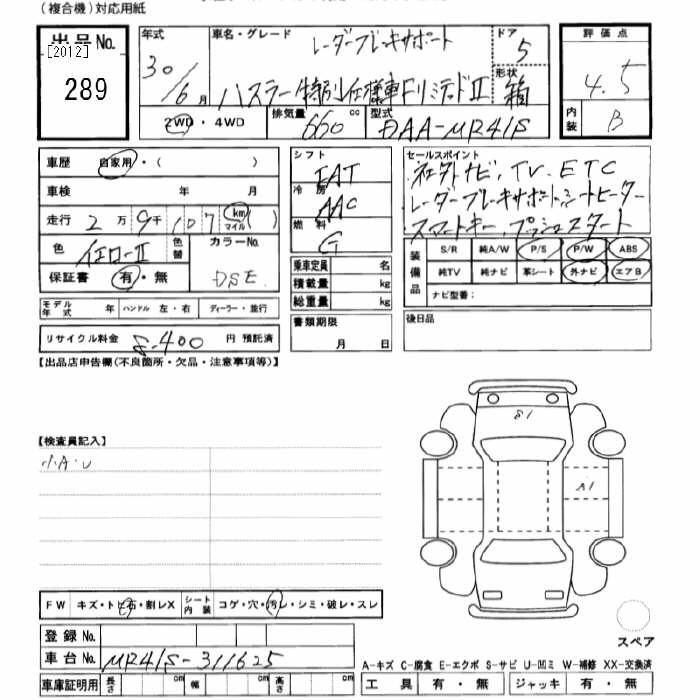 (複合機)対応用紙
出品No.
[2012]
289
年式 30/6月
車名・グレード レーダーブレーキサポート
ハスラー特別仕様車FリミテッドII
ドア 5
形状 箱
評価点 4.5
内装 B
2WD・4WD
排気量 660 cc
型式 DAA-MR41S
車歴 自家用・( )
車検 年 月
走行 2万9千107 km マイル ( )
色 イエローII 色替 カラーNo. DSE
保証書 有・無
モデル年式 年 ハンドル 左・右 ディーラー・並行
リサイクル料金 8,400 円 預託済
シフト FAT
冷房 AAC
燃料 G
乗車定員 名
積載量 kg
総重量 kg
書類期限
月 日
セールスポイント
社外ナビ、TV、ETC
レーダーブレーキサポート、シートヒーター
スマートキー、プッシュスタート
装備品 S/R 純A/W P/S P/W ABS
純TV 純ナビ 革シート 外ナビ エアB
ナビ型番:
後日品
【出品店申告欄(不良箇所・欠品・注意事項等)】
【検査員記入】
小A・U
S1
A1
FW キズ・トビ石・割レX シート内装 コゲ・穴・汚レ・シミ・破レ・スレ
スペア
登録No.
車台No. MR41S-311625
A-キズ C-腐食 E-エクボ S-サビ U-凹ミ W-補修 XX-交換済
車庫証明用 長さ cm 幅 cm 高さ cm
工具 有・無 ジャッキ 有・無